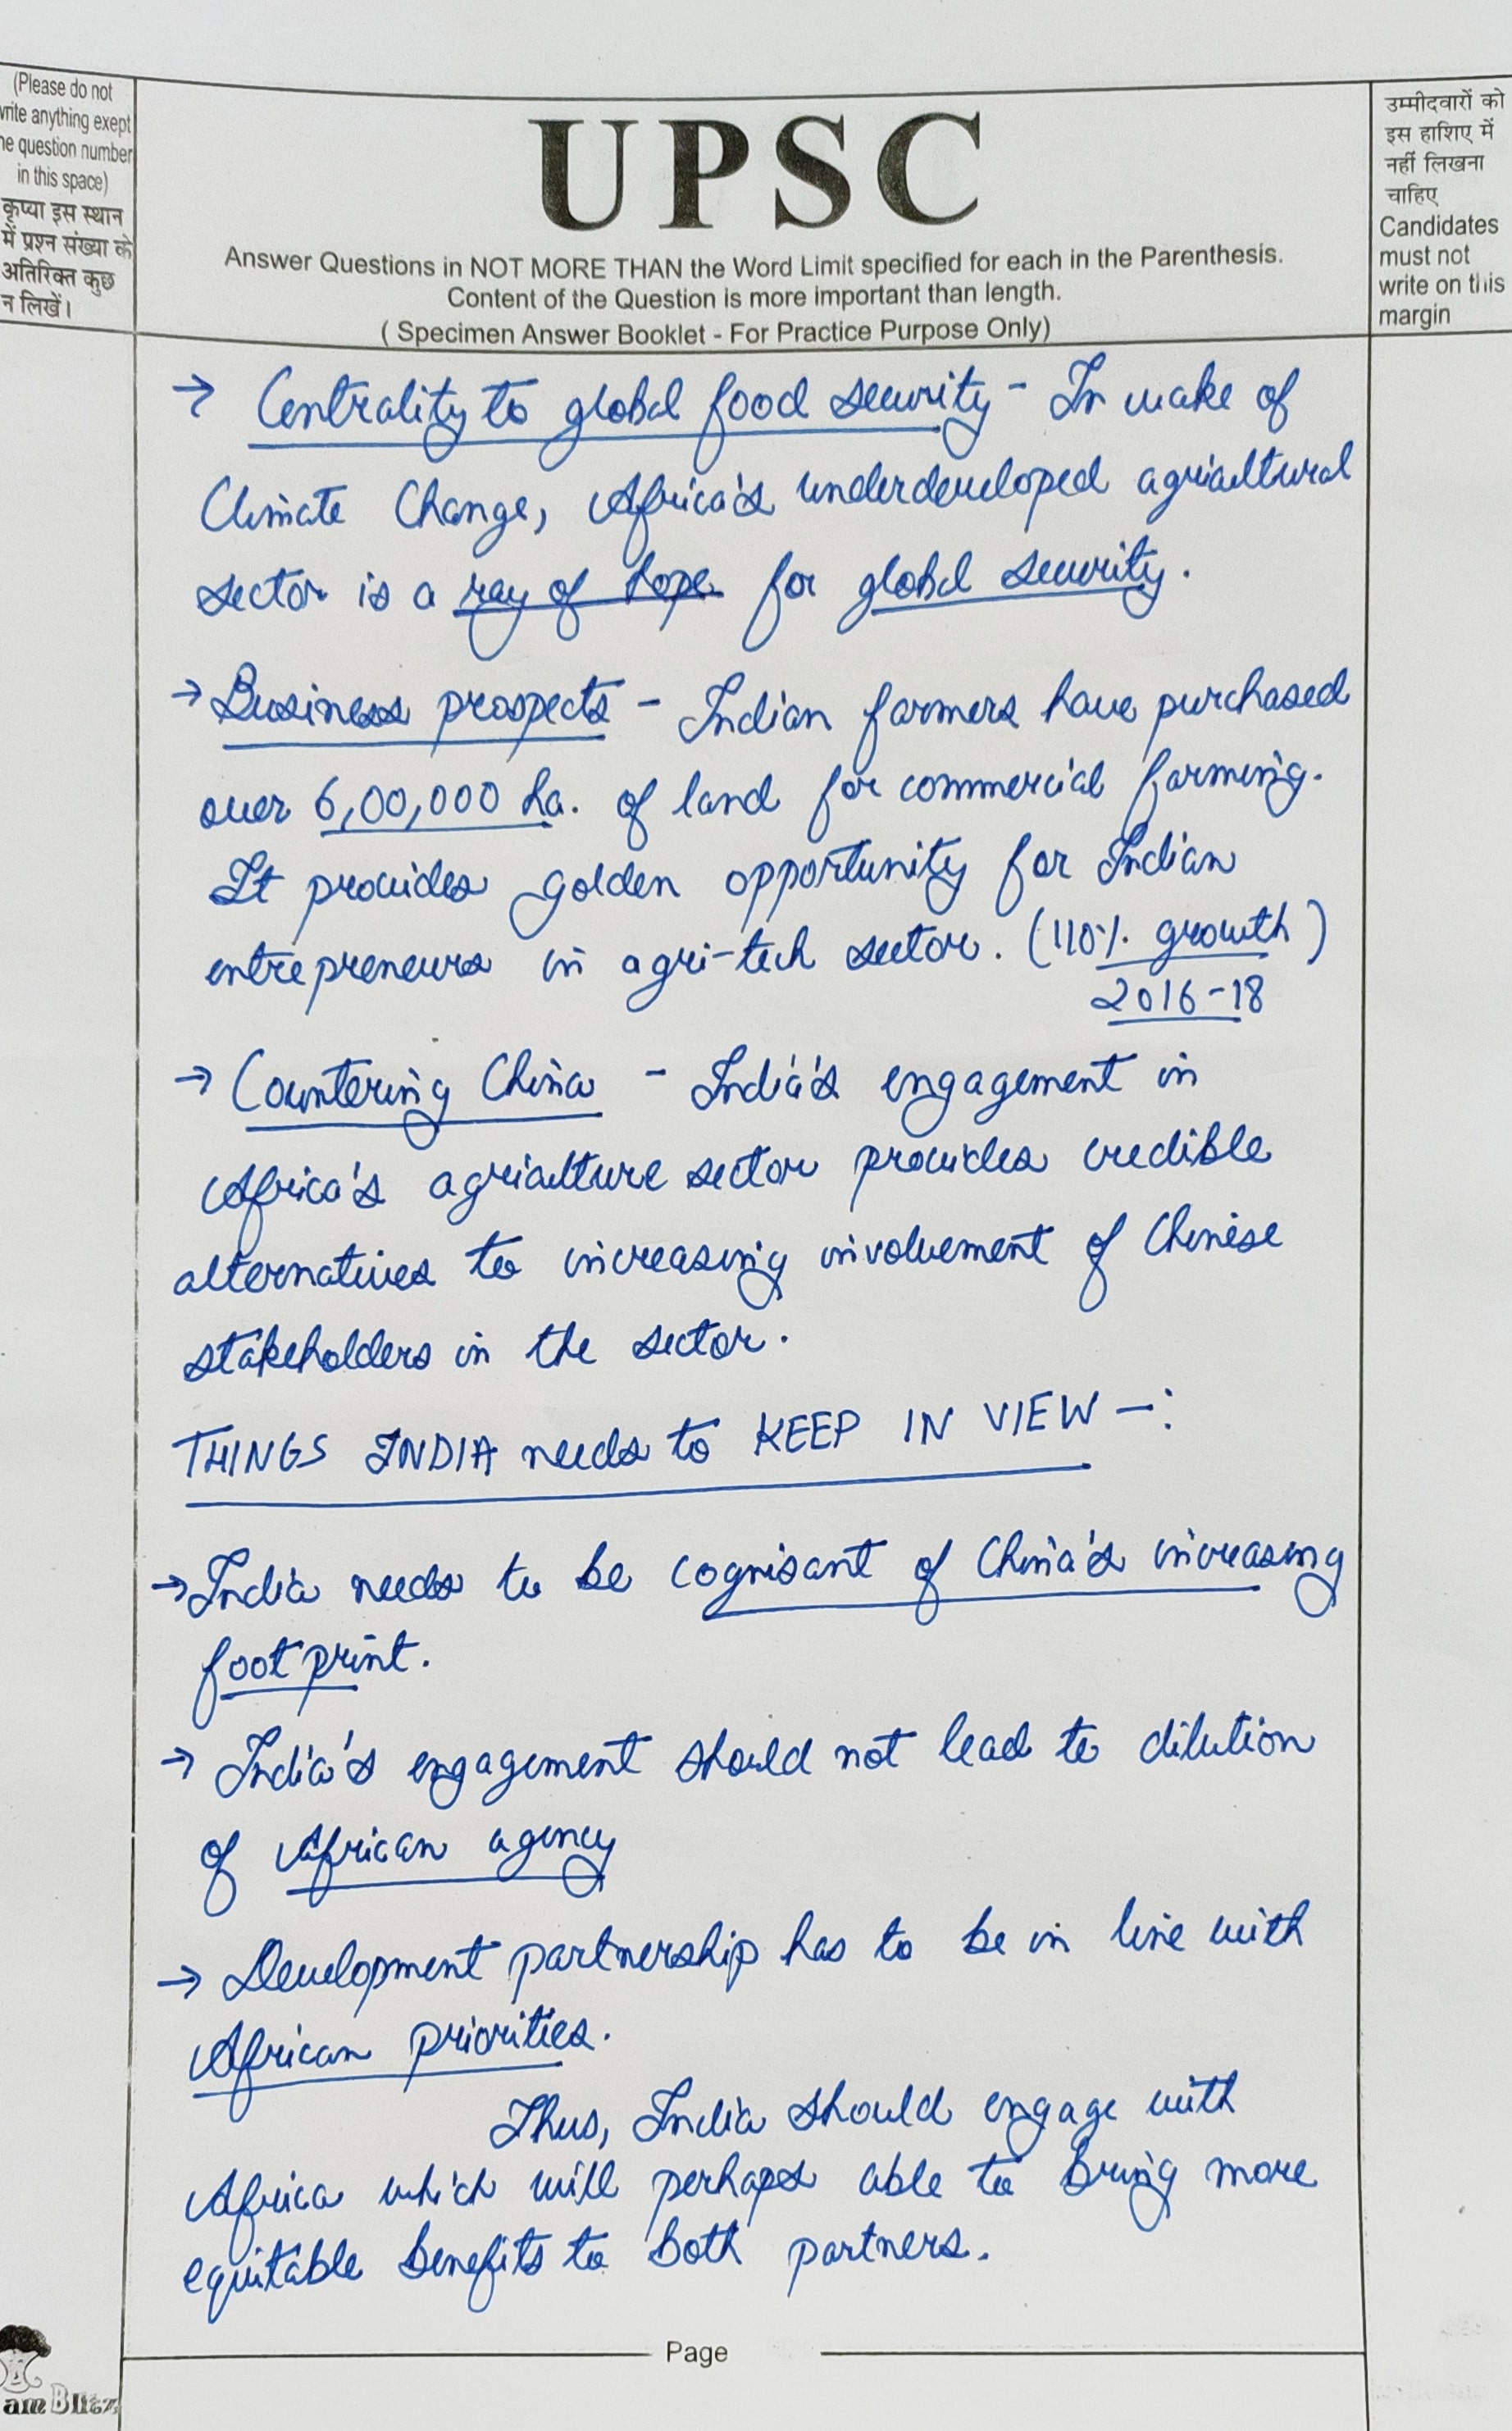 (Please do not
write anything exept
he question number
in this space)
कृप्या इस स्थान
में प्रश्न संख्या के
अतिरिक्त कुछ
न लिखें।
UPSC
Answer Questions in NOT MORE THAN the Word Limit specified for each in the Parenthesis.
Content of the Question is more important than length.
( Specimen Answer Booklet - For Practice Purpose Only)
उम्मीदवारों को
इस हाशिए में
नहीं लिखना
चाहिए
Candidates
must not
write on this
margin
→ Centrality to global food security - In wake of
Climate Change, Africa's underdeveloped agricultural
sector is a ray of hope for global security.
→ Business prospects - Indian farmers have purchased
over 6,00,000 ha. of land for commercial farming.
It provides golden opportunity for Indian
entrepreneurs in agri-tech sector. (110% growth)
2016-18
→ Countering China - India's engagement in
Africa's agriculture sector provides credible
alternatives to increasing involvement of Chinese
stakeholders in the sector.
THINGS INDIA needs to KEEP IN VIEW -:
→ India needs to be cognisant of China's increasing
footprint.
→ India's engagement should not lead to dilution
of African agency
→ Development partnership has to be in line with
African priorities.
Thus, India should engage with
Africa which will perhaps able to bring more
equitable benefits to both partners.
Page
am Blitz